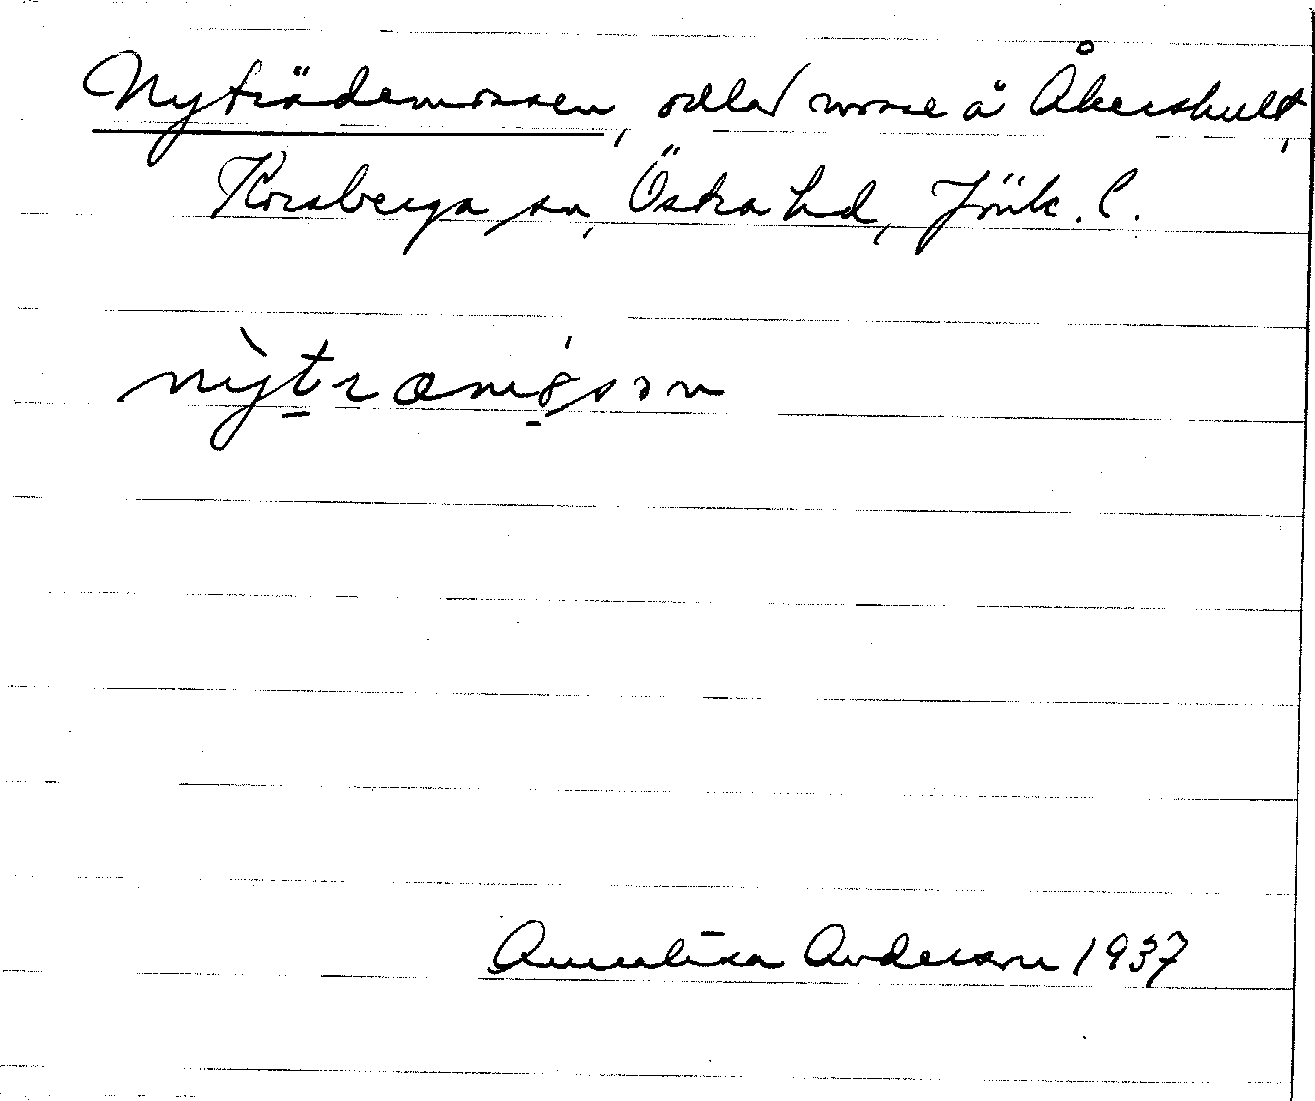 Nyträdemossen, odlad mosse å Åkershult,
Korsberga sn, Östra hd, Jönk. l.
nỳtræmǫ́ssn
Annalisa Anderson 1937